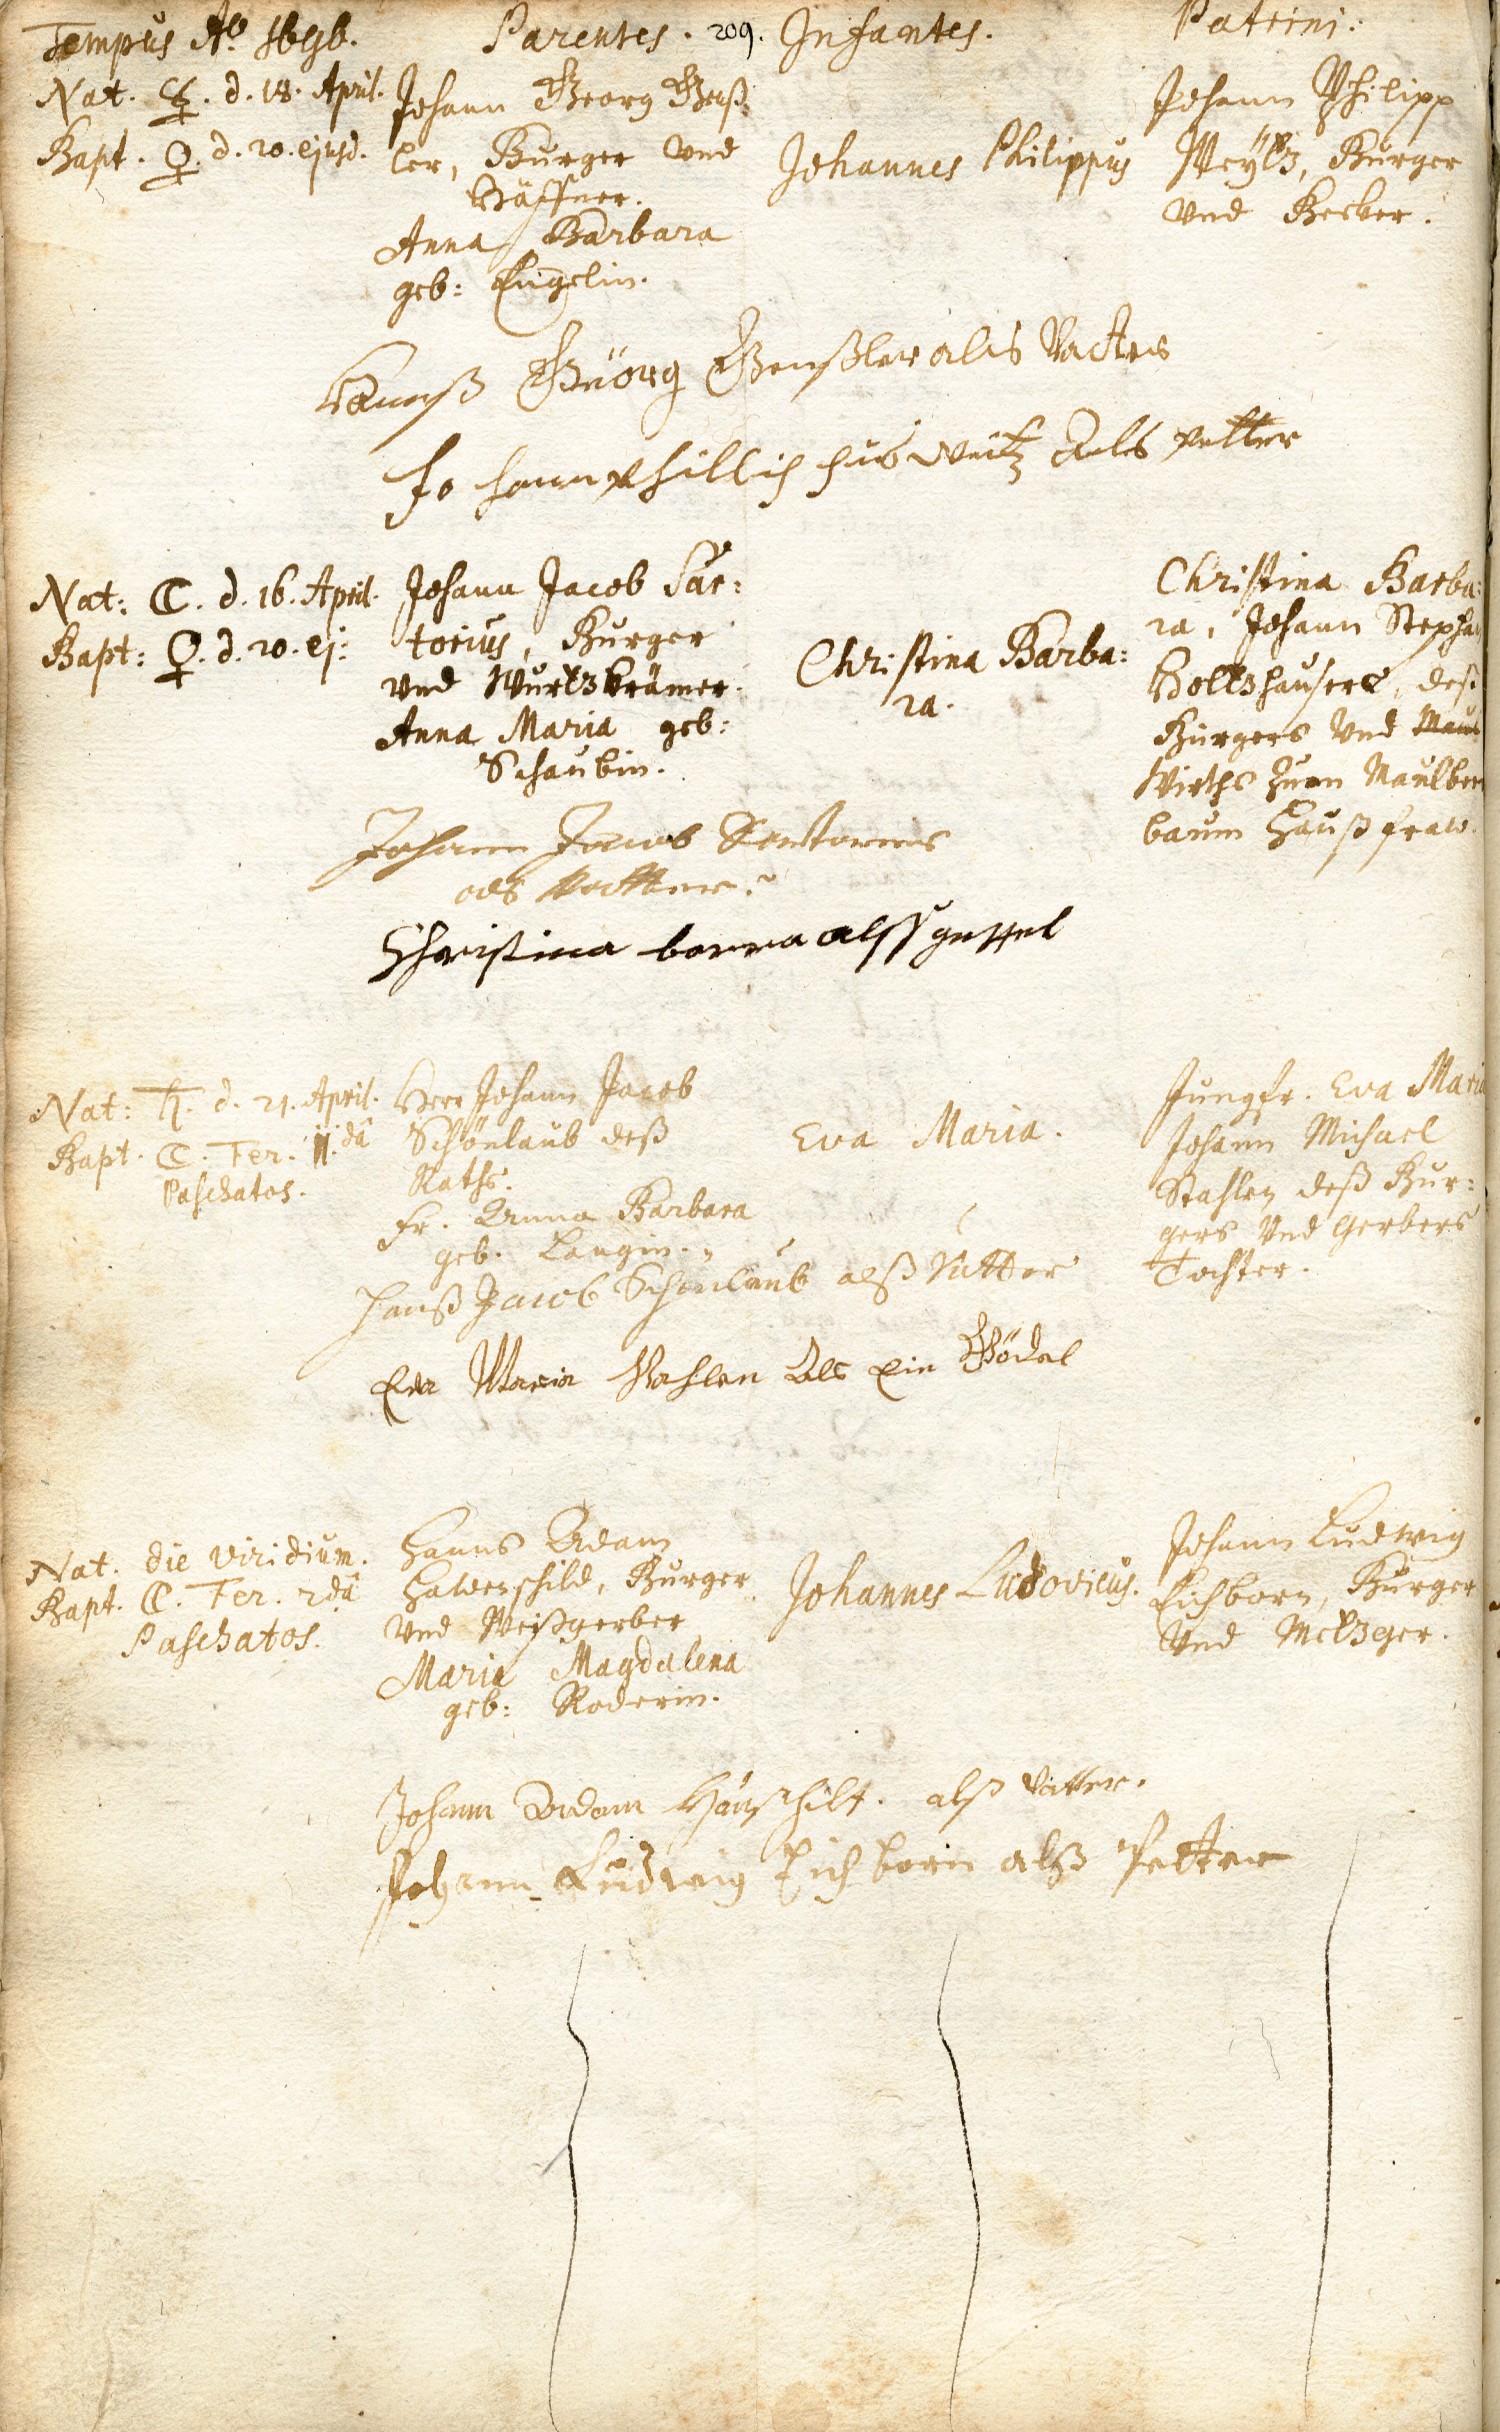 Tempus Aõ 1696.
Parentes. 209. Infantes.
Patrini:
Nat. ☿. d. 18. April.
Bapt. ♀. d. 20. ejusd.
Johann Georg Genß:
ler, Burger vnd
Häffner.
Anna Barbara
geb: Engelin.
Johannes Philippus
Johann Philipp
Weytz, Burger
vnd Becker.
Hanß Geörg Genßler als Vatter
Johann Phillich Weitz Als petter
Nat: ☾. d. 16. April.
Bapt: ♀. d. 20. ej:
Johann Jacob Sar:
torius, Burger
vnd Wurtzkrämer.
Anna Maria geb:
Schaubin.
Christina Barba:
ra.
Christina Barba:
ra, Johann Stephan
Holtzhausers, deß
Burgers vnd
Wirths zum Maulber
baum Haußfraw.
Johann Jacob Sartorius
als Vatter.
Christina als gettel
Nat: ♄. d. 21. April.
Bapt. ☾. Fer. II.dâ
Paschatos.
Herr Johann Jacob
Schönlaub deß
Raths.
Fr. Anna Barbara
geb. Langin.
Eva Maria.
Jungfr. Eva Maria
Johann Michael
Stahlen deß Bur:
gers vnd Gerbers
Tochter.
Hanß Jacob Schönlaub alß Vatter
Eva Maria Stahlen Als Ein Gödel
Nat. die viridium.
Bapt. ☾. Fer. 2dâ
Paschatos.
Hanns Adam
Hawenschild, Burger
vnd Weißgerber
Maria Magdalena
geb: Roderin.
Johannes Ludovicus.
Johann Ludwig
Eichborn, Burger
vnd Metzger.
Johann Adam Hauschilt. alß Vatter.
Johann Ludwig Eichborn alß Petter